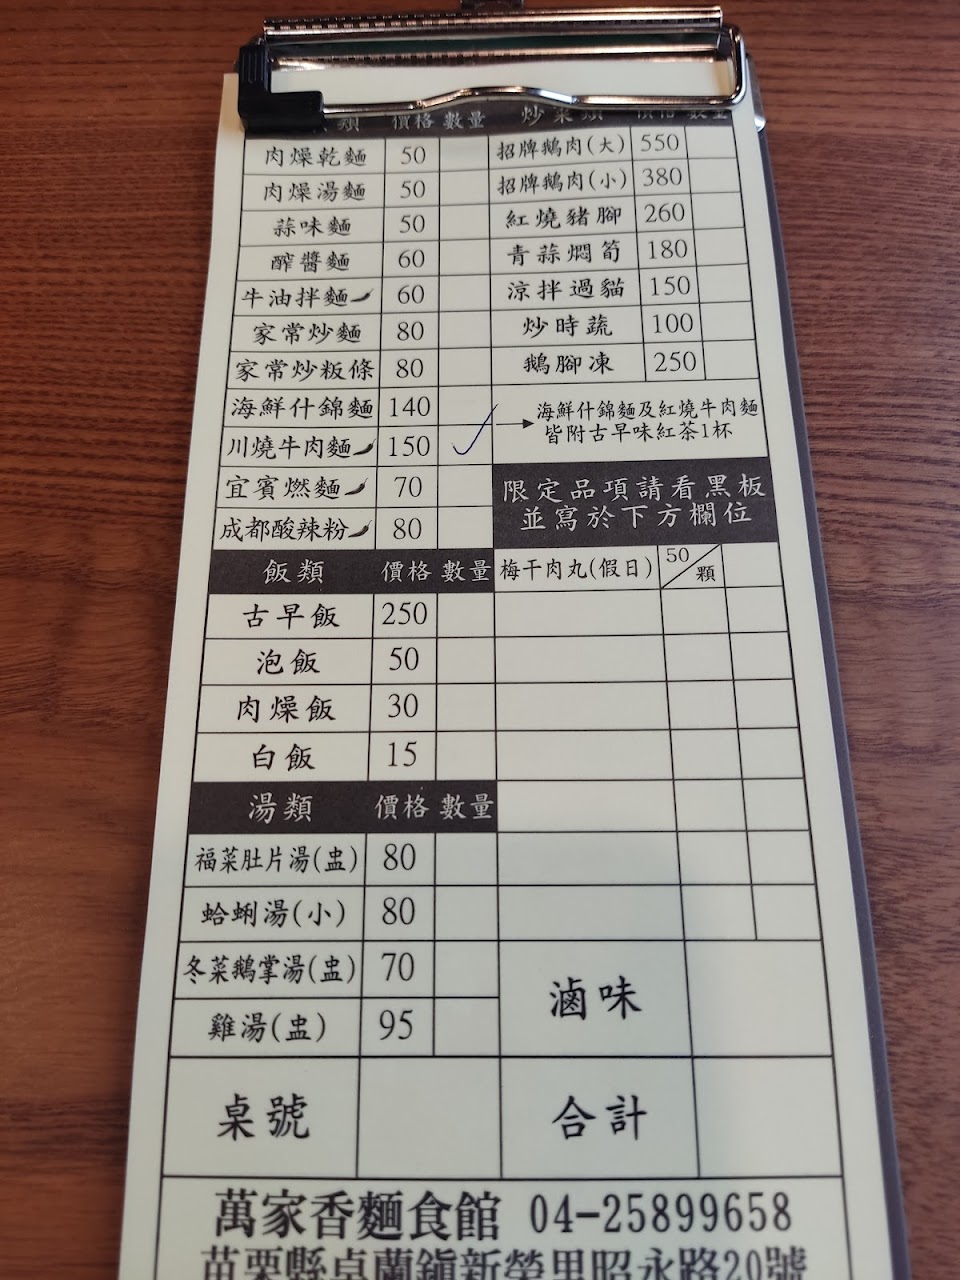 類 價格 數量
肉燥乾麵 50
肉燥湯麵 50
蒜味麵 50
醡醬麵 60
牛油拌麵 60
家常炒麵 80
家常炒粄條 80
海鮮什錦麵 140
川燒牛肉麵 150
宜賓燃麵 70
成都酸辣粉 80
飯類 價格 數量
古早飯 250
泡飯 50
肉燥飯 30
白飯 15
湯類 價格 數量
福菜肚片湯(盅) 80
蛤蜊湯(小) 80
冬菜鵝掌湯(盅) 70
雞湯(盅) 95
桌號
炒菜類 價格 數量
招牌鵝肉(大) 550
招牌鵝肉(小) 380
紅燒豬腳 260
青蒜燜筍 180
涼拌過貓 150
炒時蔬 100
鵝腳凍 250
海鮮什錦麵及紅燒牛肉麵
皆附古早味紅茶1杯
限定品項請看黑板
並寫於下方欄位
梅干肉丸(假日) 50/顆
滷味
合計
萬家香麵食館 04-25899658
苗栗縣卓蘭鎮新榮里昭永路20號